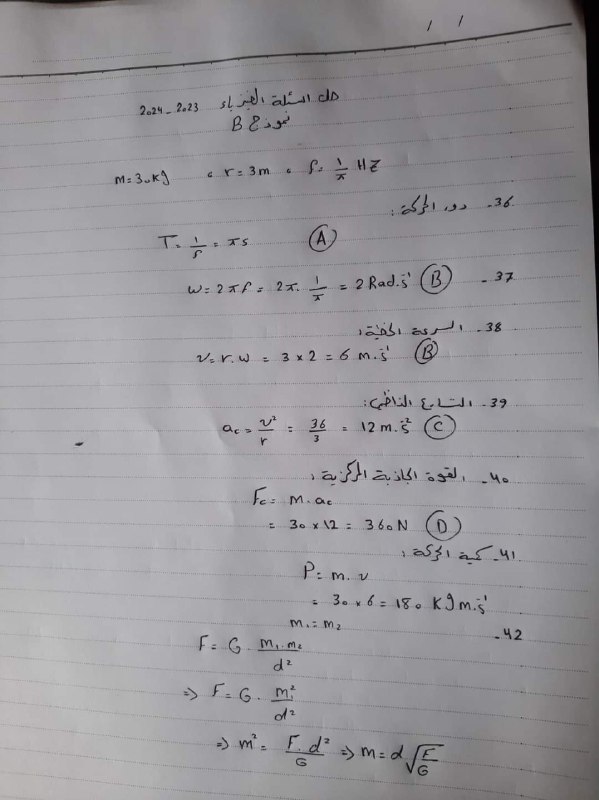 / /
حل اسئلة الفيزياء 2023 - 2024
نموذج B
m = 30 kg ، r = 3m ، f = 1/π HZ
36 - دور الحركة :
T = 1/f = πs (A)
37 - ω = 2πf = 2π . 1/π = 2 Rad.s⁻¹ (B)
38 - السرعة الخطية :
v = r.ω = 3 × 2 = 6 m.s⁻¹ (B)
39 - التسارع الناظمي :
ac = v²/r = 36/3 = 12 m.s⁻² (C)
40 - القوة الجاذبة المركزية :
Fc = m.ac
= 30 × 12 = 360 N (D)
41 - كمية الحركة :
P = m.v
= 30 × 6 = 180 Kg m.s⁻¹
42 - m₁ = m₂
F = G . m₁.m₂/d²
⇒ F = G . m₁²/d²
⇒ m² = F.d²/G ⇒ m = d√(F/G)